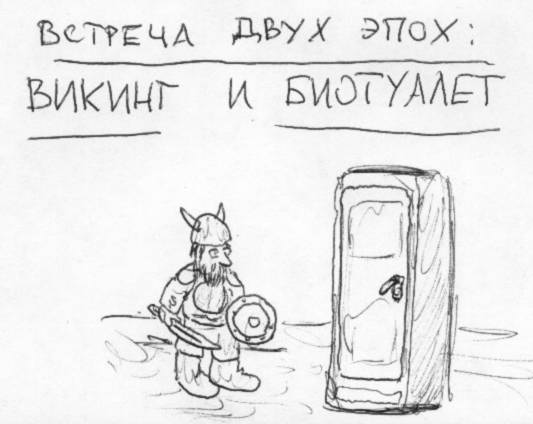 ВСТРЕЧА ДВУХ ЭПОХ:
ВИКИНГ И БИОТУАЛЕТ